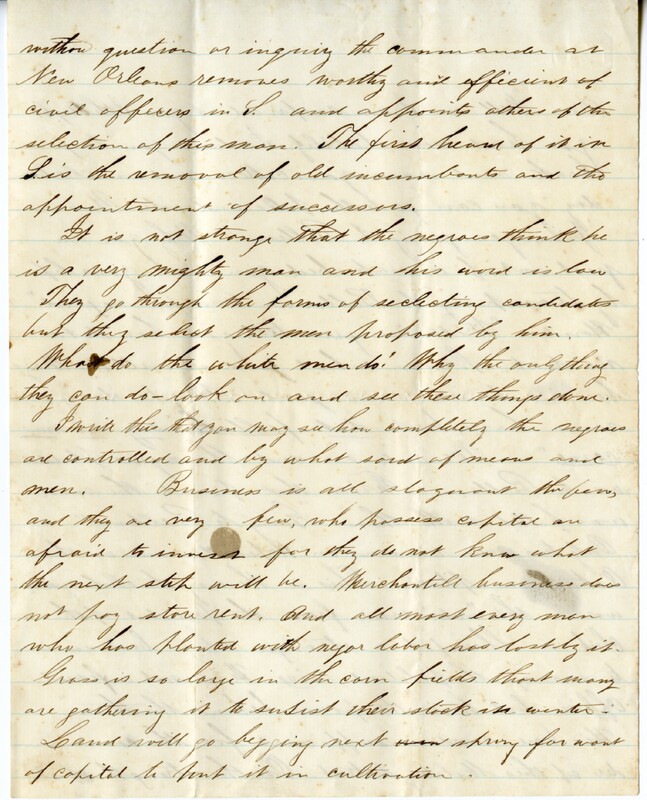 without question or inquiry the commander at
New Orleans removes worthy and efficient of
civil officers in S. and appoints others of the
selection of this man. The first heard of it in
S. is the removal of old incumbants and the
appointment of successors.
It is not strange that the negroes think he
is a very mighty man and his word is law
They go through the forms of seclecting candidates
but they select the men proposed by him.
What do the white men do! Why the only thing
they can do - look on and see these things done.
I write this that you may see how completely the negroes
are controlled and by what sord of means and
men. Business is all stagnant the few,
and they are very few, who possess capital are
afraid to invest for they do not know what
the next step will be. Merchantill business does
not pay store rent. And all most every man
who has planted with negor labor has lost by it.
Grass is so large in the corn fields that many
are gathering it to susist their stock in winter.
Land will go begging next spring for want
of capital to put it in cultivation.